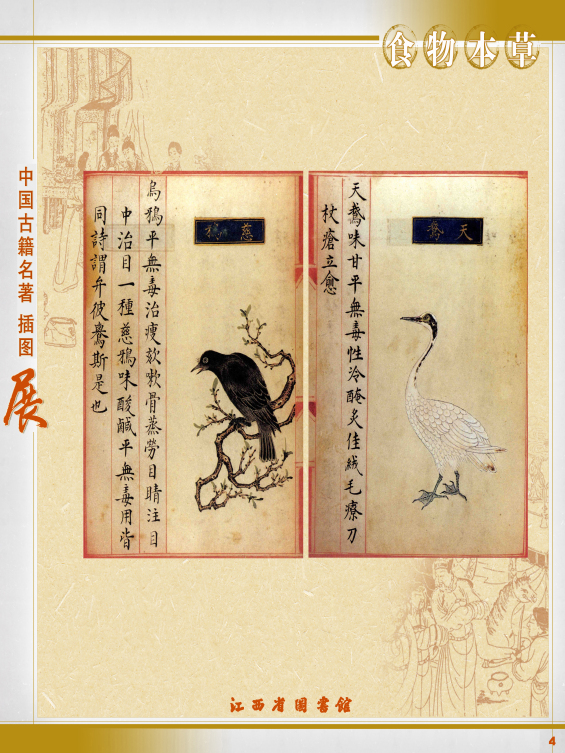 食物本草
中国古籍名著 插图
展
天鵝
天鵝味甘平無毒性冷醃炙佳絨毛療刀
杖瘡立愈
慈鴉
烏鴉平無毒治瘦欬嗽骨蒸勞目睛注目
中治目一種慈鴉味酸鹹平無毒用皆
同詩謂弁彼鸒斯是也
江西省图書館
4